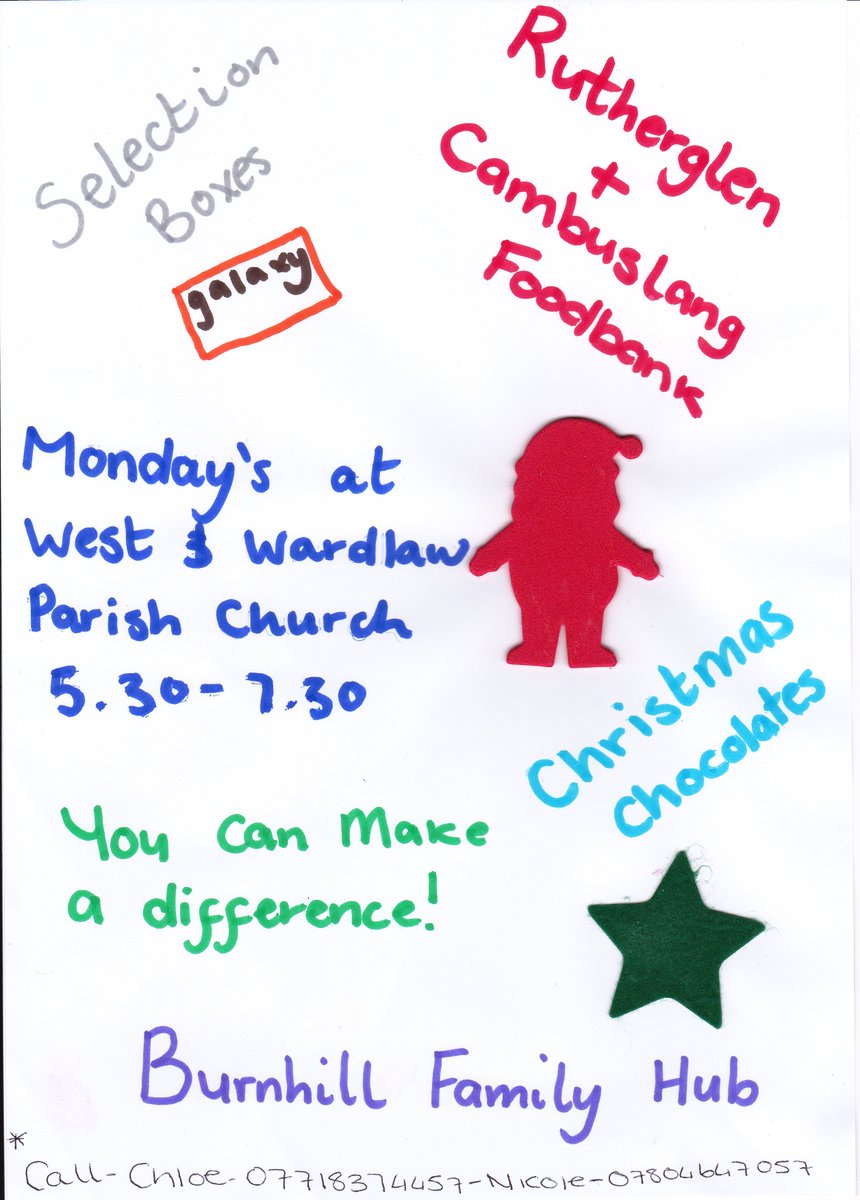 Selection
Boxes
galaxy
Rutherglen
+
Cambuslang
Foodbank
Monday's at
West & Wardlaw
Parish Church
5.30-7.30
Christmas
Chocolates
You can make
a difference!
Burnhill Family Hub
*
Call-Chloe-07718374457-Nicole-07804647057